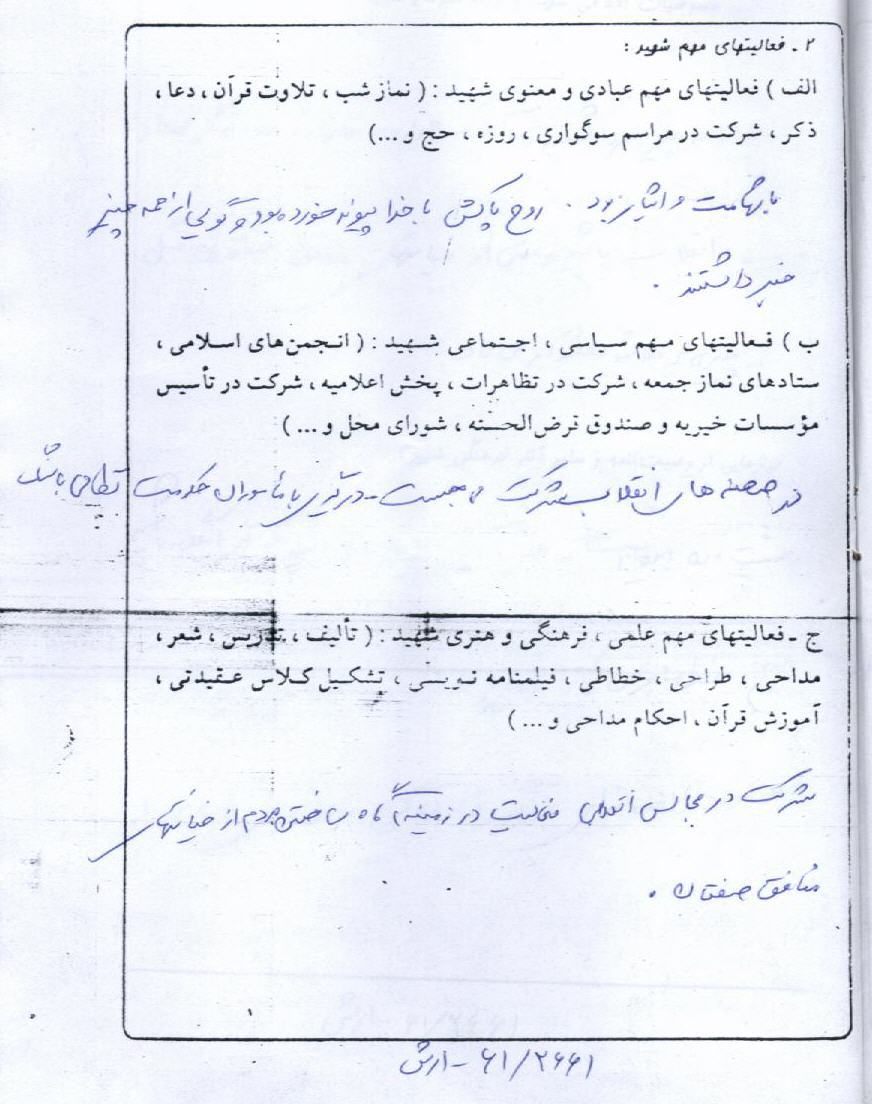 ۲ ـ فعالیتهای مهم شهید :
الف ) فعالیتهای مهم عبادی و معنوی شهید : ( نماز شب ، تلاوت قرآن ، دعا ،
ذکر ، شرکت در مراسم سوگواری ، روزه ، حج و ...)
باشهامت و ایثار بود . روح پاکش با خدا پیوند خورده بود و گویی از همه چیز
خبر داشتند .
ب ) فعالیتهای مهم سیاسی ، اجتماعی شهید : ( انجمن‌های اسلامی ،
ستادهای نماز جمعه ، شرکت در تظاهرات ، پخش اعلامیه ، شرکت در تأسیس
مؤسسات خیریه و صندوق قرض‌الحسنه ، شورای محل و ... )
در صحنه های انقلاب شرکت می جست - درگیری با مأموران حکومت نظامی
ج ـ فعالیتهای مهم علمی ، فرهنگی و هنری شهید : ( تألیف ، تدریس ، شعر ،
مداحی ، طراحی ، خطاطی ، فیلمنامه نویسی ، تشکیل کلاس عقیدتی ،
آموزش قرآن ، احکام مداحی و ... )
شرکت در مجالس انقلابی فعالیت در زمینه آگاه ساختن مردم از خیانتهای
منافق صفتان .
۶۱/۲۶۶۱ - ارتش